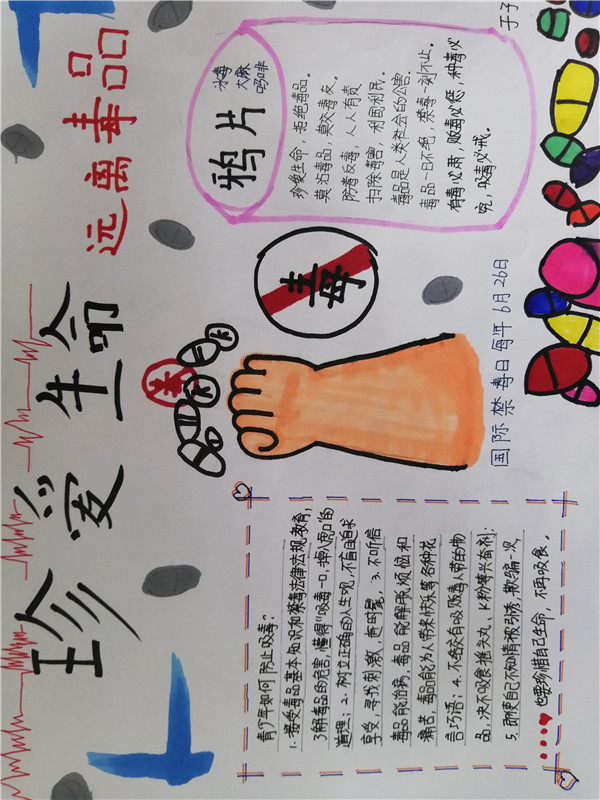 珍爱生命
远离毒品
青少年如何防止吸毒?
1.接受毒品基本知识和禁毒法律法规教育,
了解毒品的危害,懂得"吸毒一口,掉入虎口"的
道理;2.树立正确的人生观,不盲目追求
享受,寻找刺激,赶时髦,3.不听信
毒品能治病,毒品能解脱烦恼和
痛苦,毒品能为人带来快乐等各种花
言巧语;4.不结交有吸贩毒人节的物
品:决不吸食摇头丸、K粉等兴奋剂;
5.即使自己不知情被引诱,欺骗一次,
也要珍惜自己生命,不再吸食。
毒
毒
国际禁毒日每年6月26日
鸦片
冰毒
大麻
吗啡
珍爱生命,拒绝毒品。
莫沾毒品,莫交毒友。
防毒反毒,人人有责
扫除毒害,利国利民。
毒品是人类社会的公害。
毒品一日不绝,禁毒一刻不止。
有毒必肃,贩毒必惩,种毒必
究,吸毒必戒。